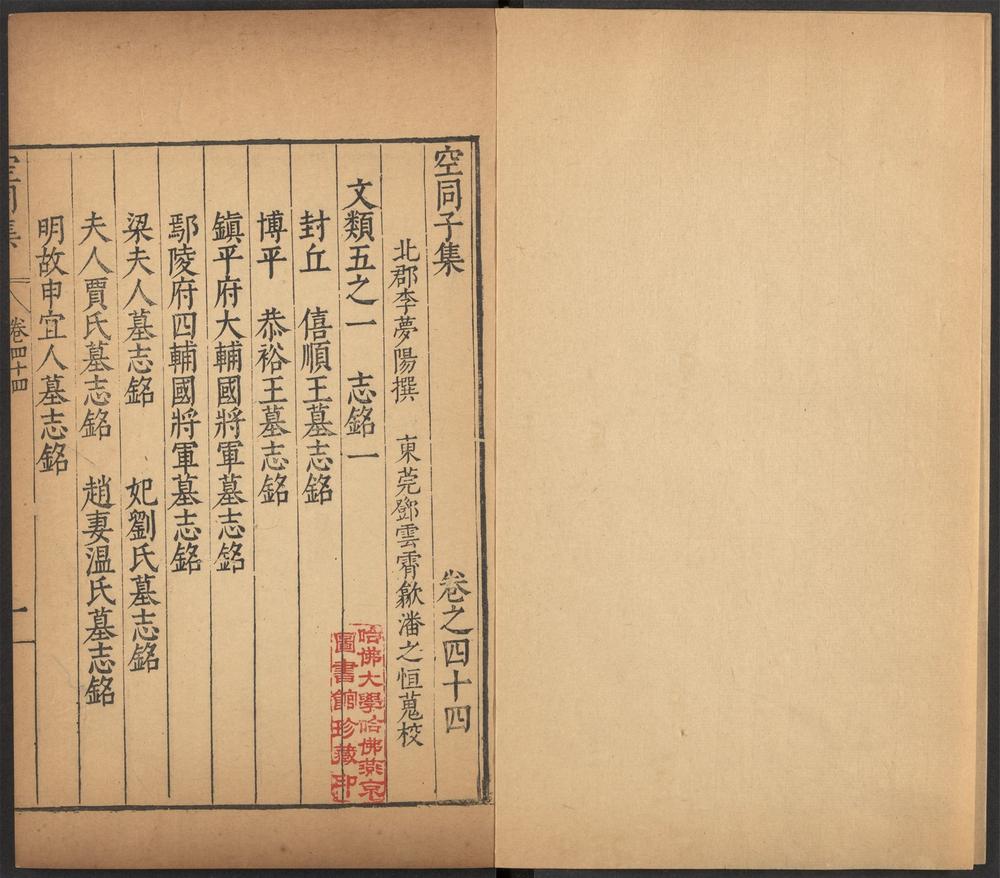 空同子集 卷之四十四
北郡李夢陽撰 東莞鄧雲霄歙潘之恒蒐校
文類五之一 志銘一
封丘 僖順王墓志銘
博平 恭裕王墓志銘
鎮平府大輔國將軍墓志銘
鄢陵府四輔國將軍墓志銘
梁夫人墓志銘 妃劉氏墓志銘
夫人賈氏墓志銘 趙妻温氏墓志銘
明故申宜人墓志銘
空同集 卷四十四 一
哈佛大學哈佛燕京
圖書館珍藏印